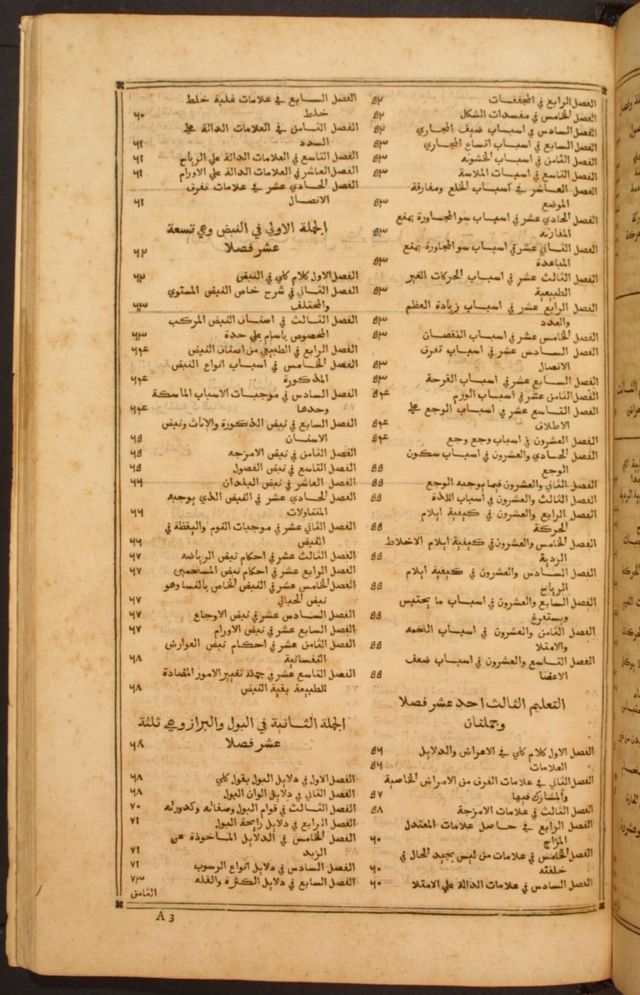 الفصل الرابع في المجففات ٥٢
الفصل الخامس في مفسدات الشكل ٥٢
الفصل السادس في اسباب ضيف المجاري ٥٢
الفصل السابع في اسباب اتساع المجاري ٥٣
الفصل الثامن في اسباب الخشونه ٥٣
الفصل التاسع في اسبات الملاسة ٥٣
الفصل العاشر في اسباب الخلع ومفارقة
الموضع ٥٣
الفصل الحادي عشر في اسباب سو المجاورة بمنع
المقارنه ٥٣
الفصل الثاني عشر في اسباب سو المجاورة بمنع
المباعدة ٥٣
الفصل الثالث عشر في اسباب الحركات الغير
الطبيعية ٥٣
الفصل الرابع عشر في اسباب زيادة العظم
والعدد ٥٣
الفصل الخامس عشر في اسباب النقصان ٥٣
الفصل السادس عشر في اسباب تفرف
الاتصال ٥٣
الفصل السابع عشر في اسباب القرحة ٥٣
الفصل الثامن عشر في اسباب الورم ٥٤
الفصل التاسع عشر في اسباب الوجع علي
الاطلاف ٥٤
الفصل العشرون في اسباب وجع وجع ٥٤
الفصل الحادي والعشرون في اسباب سكون
الوجع ٥٥
الفصل الثاني والعشرون فيما يوجبه الوجع ٥٥
الفصل الثالث والعشرون في اسباب اللذة ٥٥
الفصل الرابع والعشرون في كيفية ايلام
الحركة ٥٥
الفصل الخامس والعشرون في كيفية ايلام الاخلاط
الردية ٥٥
الفصل السادس والعشرون في كيفية ايلام
الرياح ٥٥
الفصل السابع والعشرون في اسباب ما يحتبس
ويستفرغ ٥٥
الفصل الثامن والعشرون في اسباب التخمه
والامتلا ٥٥
الفصل التاسع والعشرون في اسباب ضعف
الاعضا ٥٥
التعليم الثالث احد عشر فصلا
وجملتان
الفصل الاول كلام كلي في الاعراض والدلايل ٥٦
العلامات ٥٦
الفصل الثاني في علامات الفرف من الامراض الخاصية
والمشارك فيها ٥٧
الفصل الثالث في علامات الامزجة ٥٨
الفصل الرابع في حاصل علامات المعتدل
المزاج ٦٠
الفصل الخامس في علامات من ليس بجيد الحال في
خلقته ٦٠
الفصل السادس في علامات الدالة علي الامتلا ٦٠
الفصل السابع في علامات غلبة خلط
خلط ٦٠
الفصل الثامن في العلامات الدالة علي
السدد ٦١
الفصل التاسع في العلامات الدالة علي الرياح ٦١
الفصل العاشر في العلامات الدالة علي الاورام ٦١
الفصل الحادي عشر في علامات تفرف
الاتصال ٦١
الجملة الاولي في النبض وهي تسعة
عشر فصلا ٦٢
الفصل الاول كلام كلي في النبض ٦٢
الفصل الثاني في شرح خاص النبض المستوي
والمختلف ٦٣
الفصل الثالث في اصناف النبض المركب
المخصوص باسام علي حدة ٦٣
الفصل الرابع في الطبيعي من اصناف النبض ٦٤
الفصل الخامس في اسباب انواع النبض
المذكورة ٦٤
الفصل السادس في موجبات الاسباب الماسكة
وحدها ٦٤
الفصل السابع في نبض الذكورة والاناث ونبض
الاسنان ٦٥
الفصل الثامن في نبض الامزجه ٦٥
الفصل التاسع في نبض الفصول ٦٥
الفصل العاشر في نبض البلدان ٦٦
الفصل الحادي عشر في النبض الذي يوجبه
المتناولات ٦٦
الفصل الثاني عشر في موجبات النوم واليقظة في
النبض ٦٦
الفصل الثالث عشر في احكام نبض الرياضه ٦٧
الفصل الرابع عشر في احكام نبض المستحمين ٦٧
الفصل الخامس عشر في النبض الخاص بالنسا وهو
نبض الحبالي ٦٧
الفصل السادس عشر في نبض الاوجاع ٦٧
الفصل السابع عشر في نبض الاورام ٦٧
الفصل الثامن عشر في احكام نبض العوارض
النفسانية ٦٨
الفصل التاسع عشر في جملة تغيير الامور المضادة
للطبيعة بقية النبض ٦٨
الجملة الثانية في البول والبراز وهي ثلثة
عشر فصلا ٦٨
الفصل الاول في دلايل البول بقول كلي ٦٨
الفصل الثاني في دلايل الوان البول ٦٨
الفصل الثالث في قوام البول وصفائه وكدورته ٧٠
الفصل الرابع في دلايل رايحة البول ٧١
الفصل الخامس في الدلايل الماخوذة عن
الزبد ٧١
الفصل السادس في دلايل انواع الرسوب ٧١
الفصل السابع في دلايل الكثرة والقله ٧٣
الثامن
A 3